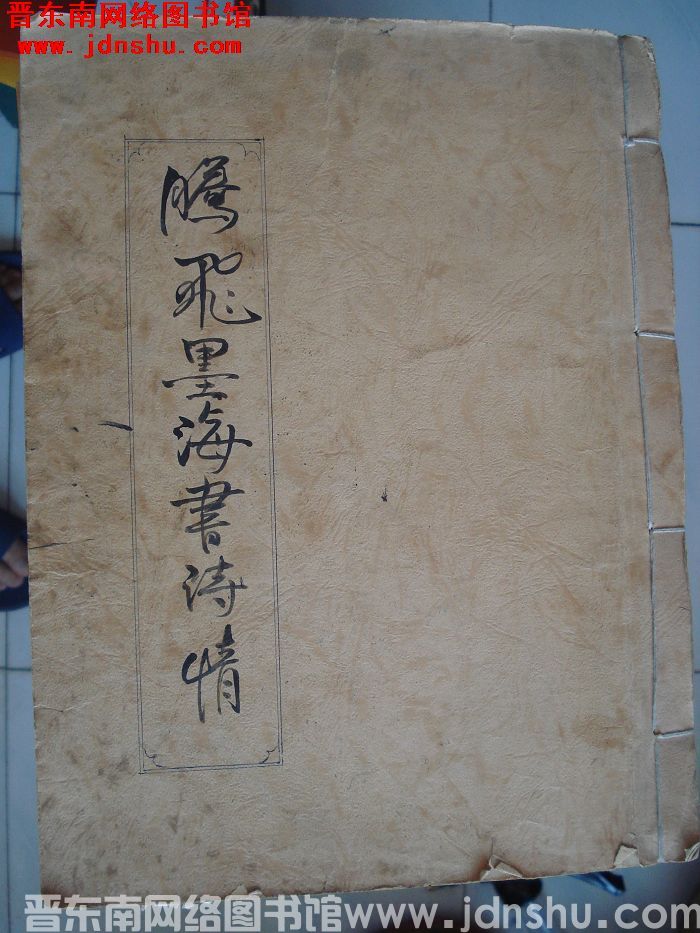 晋东南网络图书馆
www.jdnshu.com
騰飛墨海書诗情
晋东南网络图书馆www.jdnshu.com